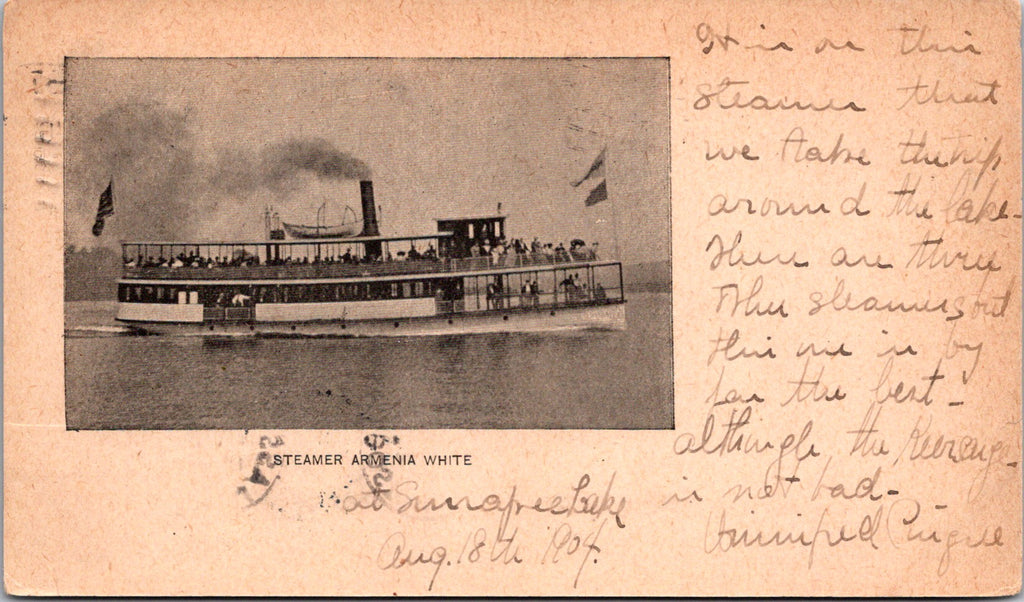 It is on this
steamer that
we take the trip
around the lake-
There are three
other steamers but
this one is by
far the best-
although the Kearsarge-
is not bad-
Winnifred Pingree
STEAMER ARMENIA WHITE
at Sunapee Lake
Aug. 18th 1904.